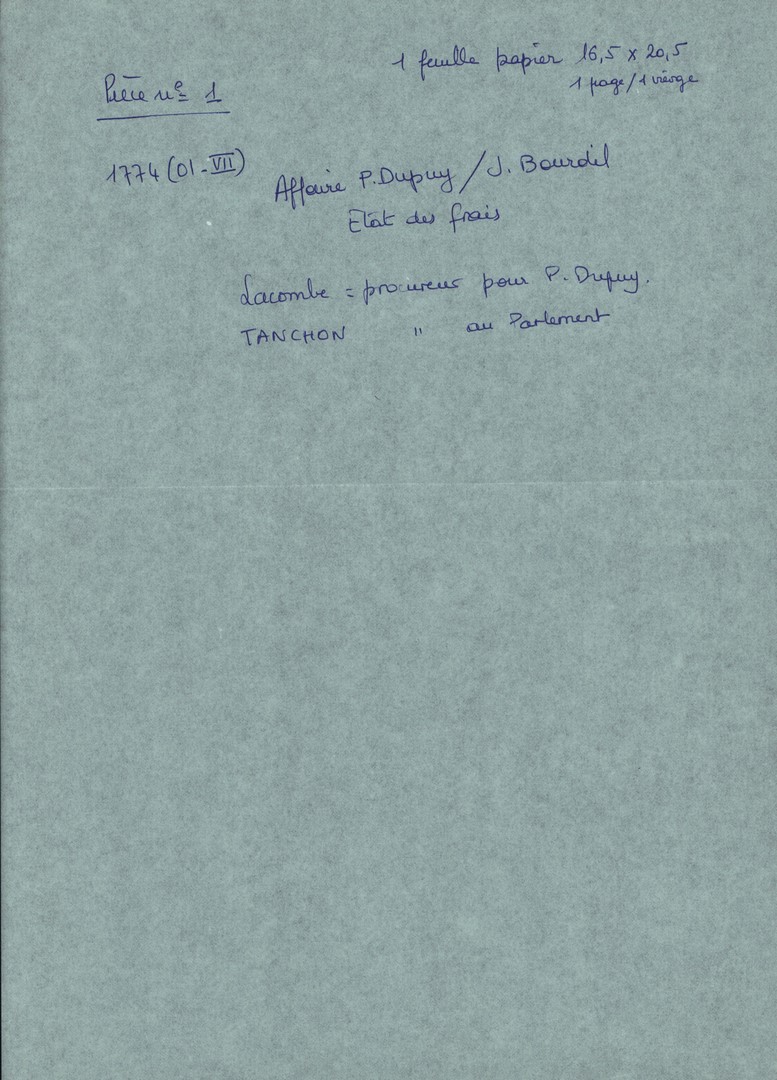 1 feuille papier 16,5 x 20,5
1 page/1 vierge
Pièce nº 1
1774 (01-VII)
Affaire P. Dupuy / J. Bourdil
Etat des frais
Lacombe = procureur pour P. Dupuy.
TANCHON " au Parlement